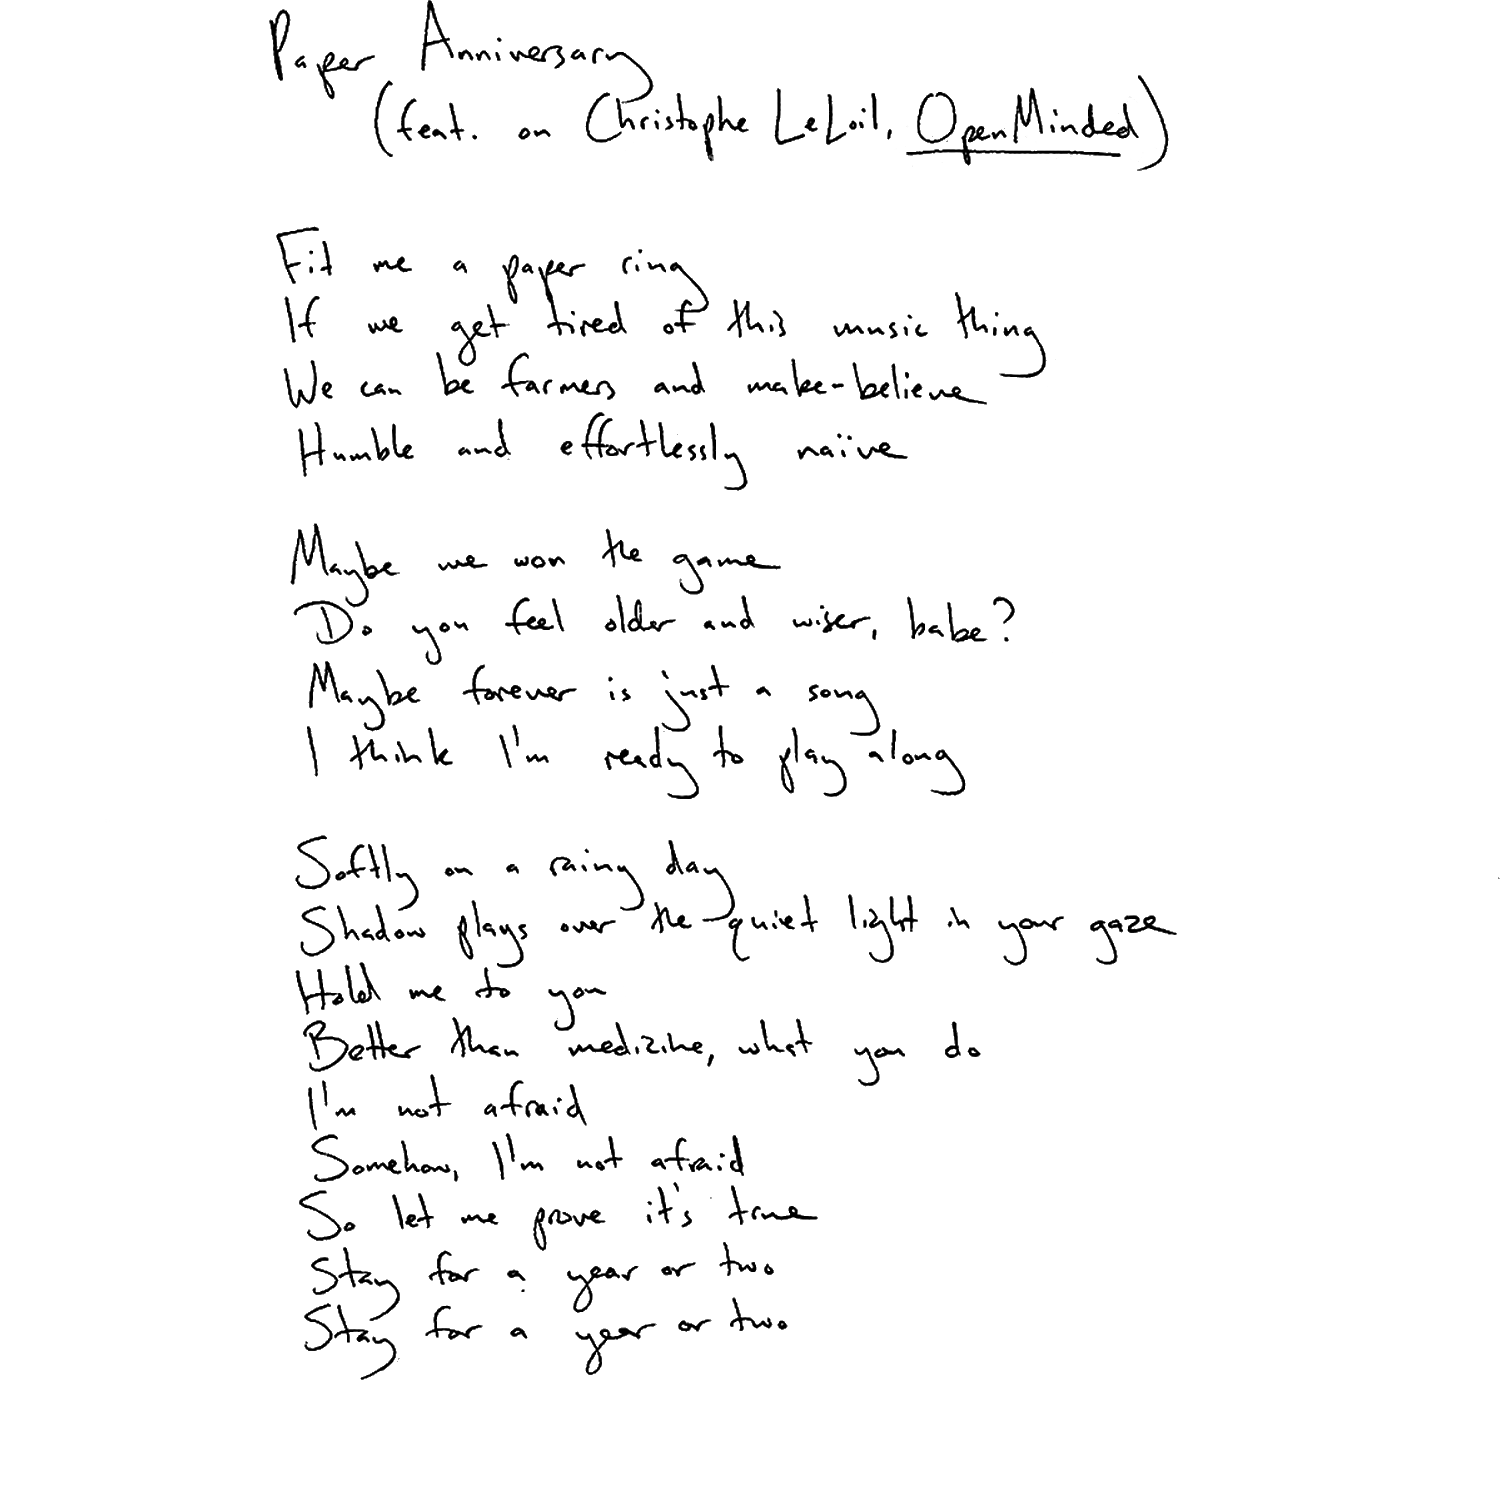 Paper Anniversary
(feat. on Christophe LeLoil, OpenMinded)
Fit me a paper ring
If we get tired of this music thing
We can be farmers and make-believe
Humble and effortlessly naïve
Maybe we won the game
Do you feel older and wiser, babe?
Maybe forever is just a song
I think I'm ready to play along
Softly on a rainy day
Shadow plays over the quiet light in your gaze
Hold me to you
Better than medizine, what you do
I'm not afraid
Somehow, I'm not afraid
So let me prove it's true
Stay for a year or two
Stay for a year or two